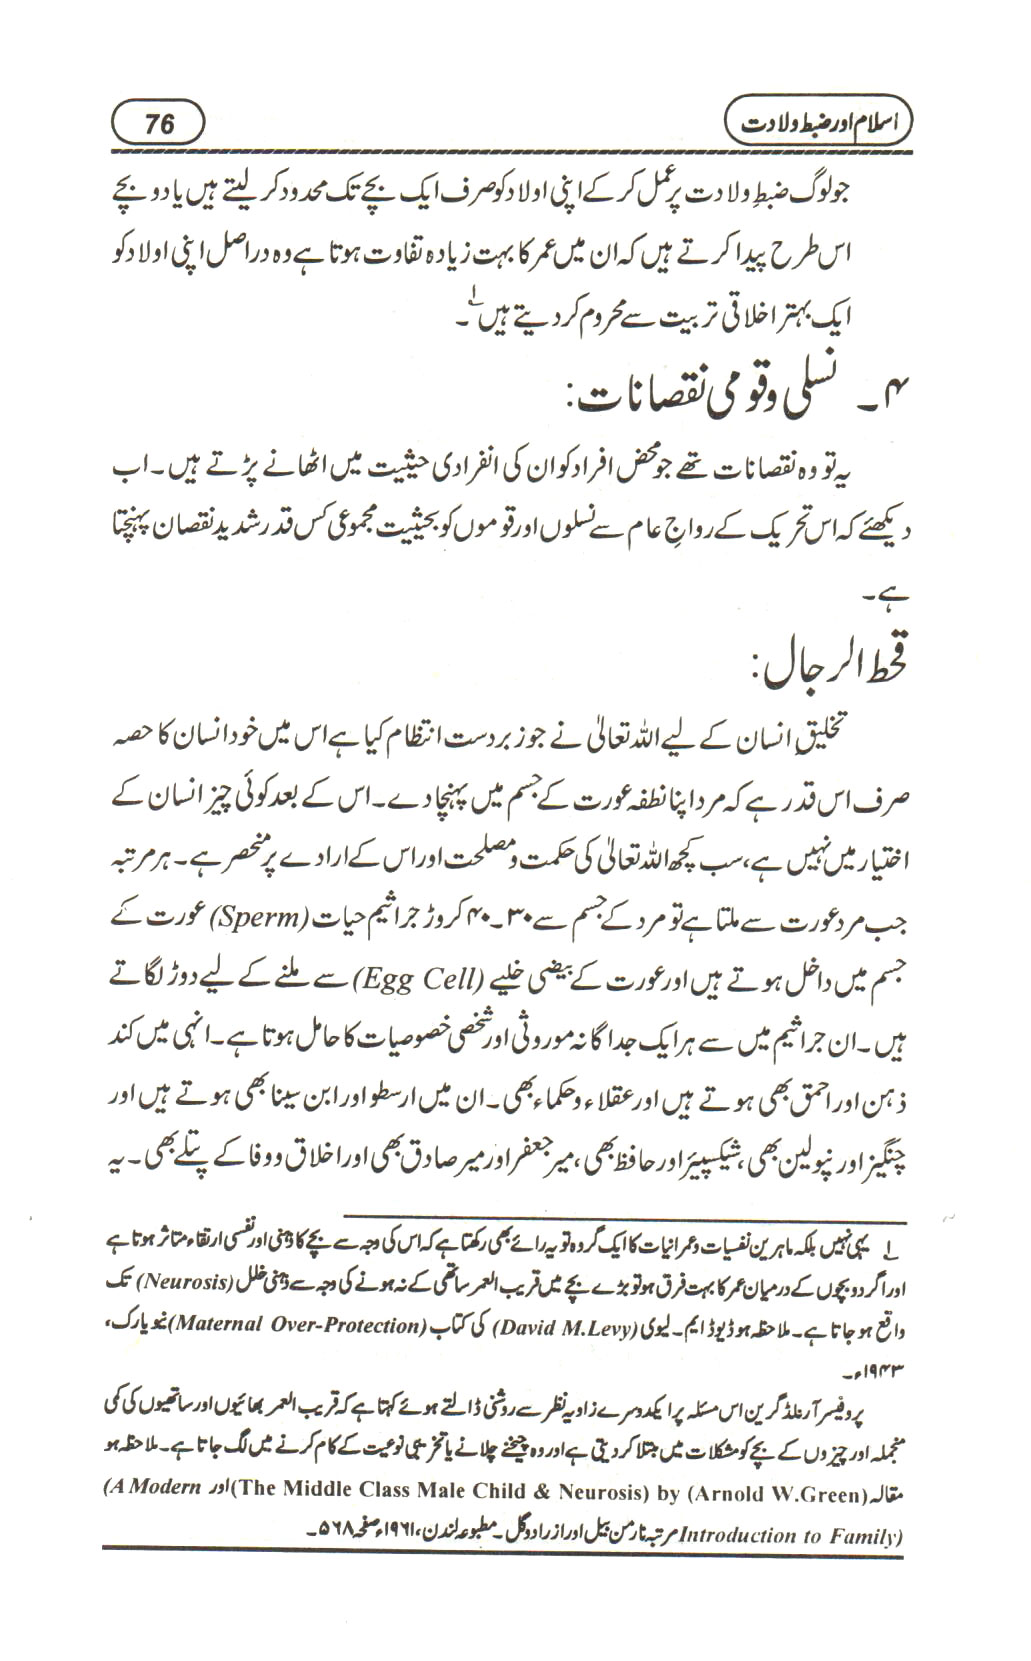 اسلام اور ضبط ولادت
76
جو لوگ ضبطِ ولادت پر عمل کر کے اپنی اولاد کو صرف ایک بچے تک محدود کر لیتے ہیں یا دو بچے
اس طرح پیدا کرتے ہیں کہ ان میں عمر کا بہت زیادہ تفاوت ہوتا ہے وہ دراصل اپنی اولاد کو
ایک بہتر اخلاقی تربیت سے محروم کر دیتے ہیں۱۔
۴۔ نسلی و قومی نقصانات:
یہ تو وہ نقصانات تھے جو محض افراد کو ان کی انفرادی حیثیت میں اٹھانے پڑتے ہیں۔ اب
دیکھئے کہ اس تحریک کے رواجِ عام سے نسلوں اور قوموں کو بحیثیت مجموعی کس قدر شدید نقصان پہنچتا
ہے۔
قحط الرجال:
تخلیقِ انسان کے لیے اللہ تعالیٰ نے جو زبردست انتظام کیا ہے اس میں خود انسان کا حصہ
صرف اس قدر ہے کہ مرد اپنا نطفہ عورت کے جسم میں پہنچا دے۔ اس کے بعد کوئی چیز انسان کے
اختیار میں نہیں ہے، سب کچھ اللہ تعالیٰ کی حکمت و مصلحت اور اس کے ارادے پر منحصر ہے۔ ہر مرتبہ
جب مرد عورت سے ملتا ہے تو مرد کے جسم سے ۳۰۔۴۰ کروڑ جراثیم حیات (Sperm) عورت کے
جسم میں داخل ہوتے ہیں اور عورت کے بیضی خلیے (Egg Cell) سے ملنے کے لیے دوڑ لگاتے
ہیں۔ ان جراثیم میں سے ہر ایک جداگانہ موروثی اور شخصی خصوصیات کا حامل ہوتا ہے۔ انہی میں کند
ذہن اور احمق بھی ہوتے ہیں اور عقلاء و حکماء بھی۔ ان میں ارسطو اور ابن سینا بھی ہوتے ہیں اور
چنگیز اور نپولین بھی، شیکسپیئر اور حافظ بھی، میر جعفر اور میر صادق بھی اور اخلاق و وفا کے پتلے بھی۔ یہ
۱ یہی نہیں بلکہ ماہرین نفسیات و عمرانیات کا ایک گروہ تو یہ رائے بھی رکھتا ہے کہ اس کی وجہ سے بچے کا ذہنی اور نفسی ارتقاء متاثر ہوتا ہے
اور اگر دو بچوں کے درمیان عمر کا بہت فرق ہو تو بڑے بچے میں قریب العمر ساتھی کے نہ ہونے کی وجہ سے ذہنی خلل (Neurosis) تک
واقع ہو جاتا ہے۔ ملاحظہ ہو ڈیوڈ ایم۔ لیوی (David M.Levy) کی کتاب (Maternal Over-Protection) نیویارک،
۱۹۴۳ء۔
پروفیسر آرنلڈ گرین اس مسئلہ پر ایک دوسرے زاویہ نظر سے روشنی ڈالتے ہوئے کہتا ہے کہ قریب العمر بھائیوں اور ساتھیوں کی کمی
منجملہ اور چیزوں کے بچے کو مشکلات میں مبتلا کر دیتی ہے اور وہ چیخنے چلانے یا تخریبی نوعیت کے کام کرنے میں لگ جاتا ہے۔ ملاحظہ ہو
مقالہ (The Middle Class Male Child & Neurosis) by (Arnold W.Green) اور (A Modern
Introduction to Family) مرتبہ نارمن بیل اور ازرا ووگل۔ مطبوعہ لندن، ۱۹۶۱ء صفحہ ۵۶۸۔